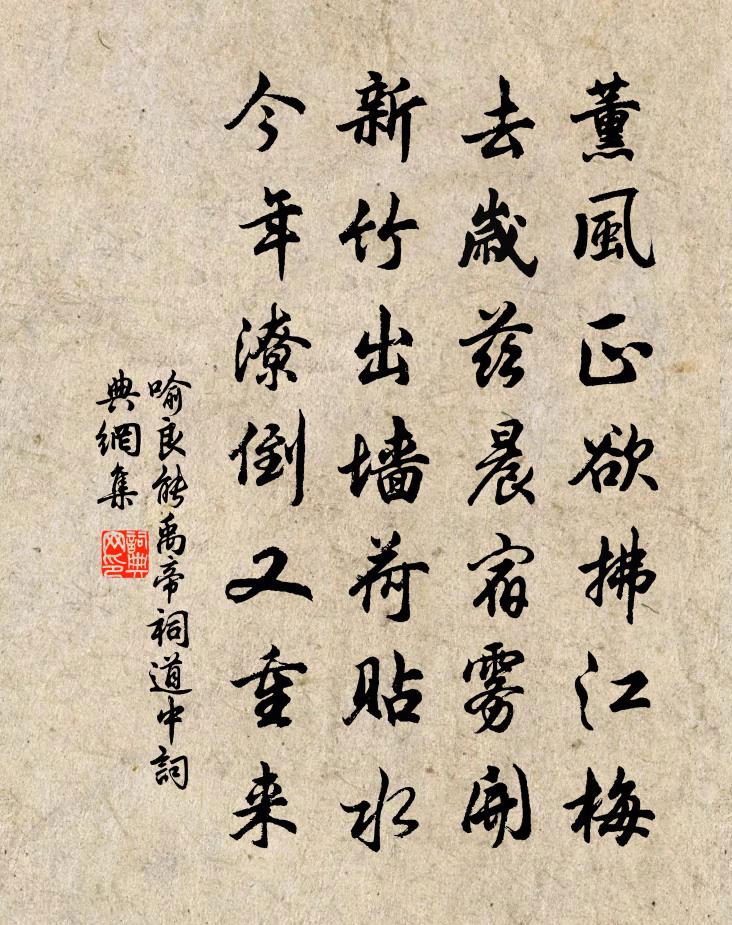 薰風正欲拂江梅
去歲茲晨宿雾開
新竹出墙荷貼水
今年潦倒又重来
喻良能禹帝祠道中詞
典網集
詞典
网印